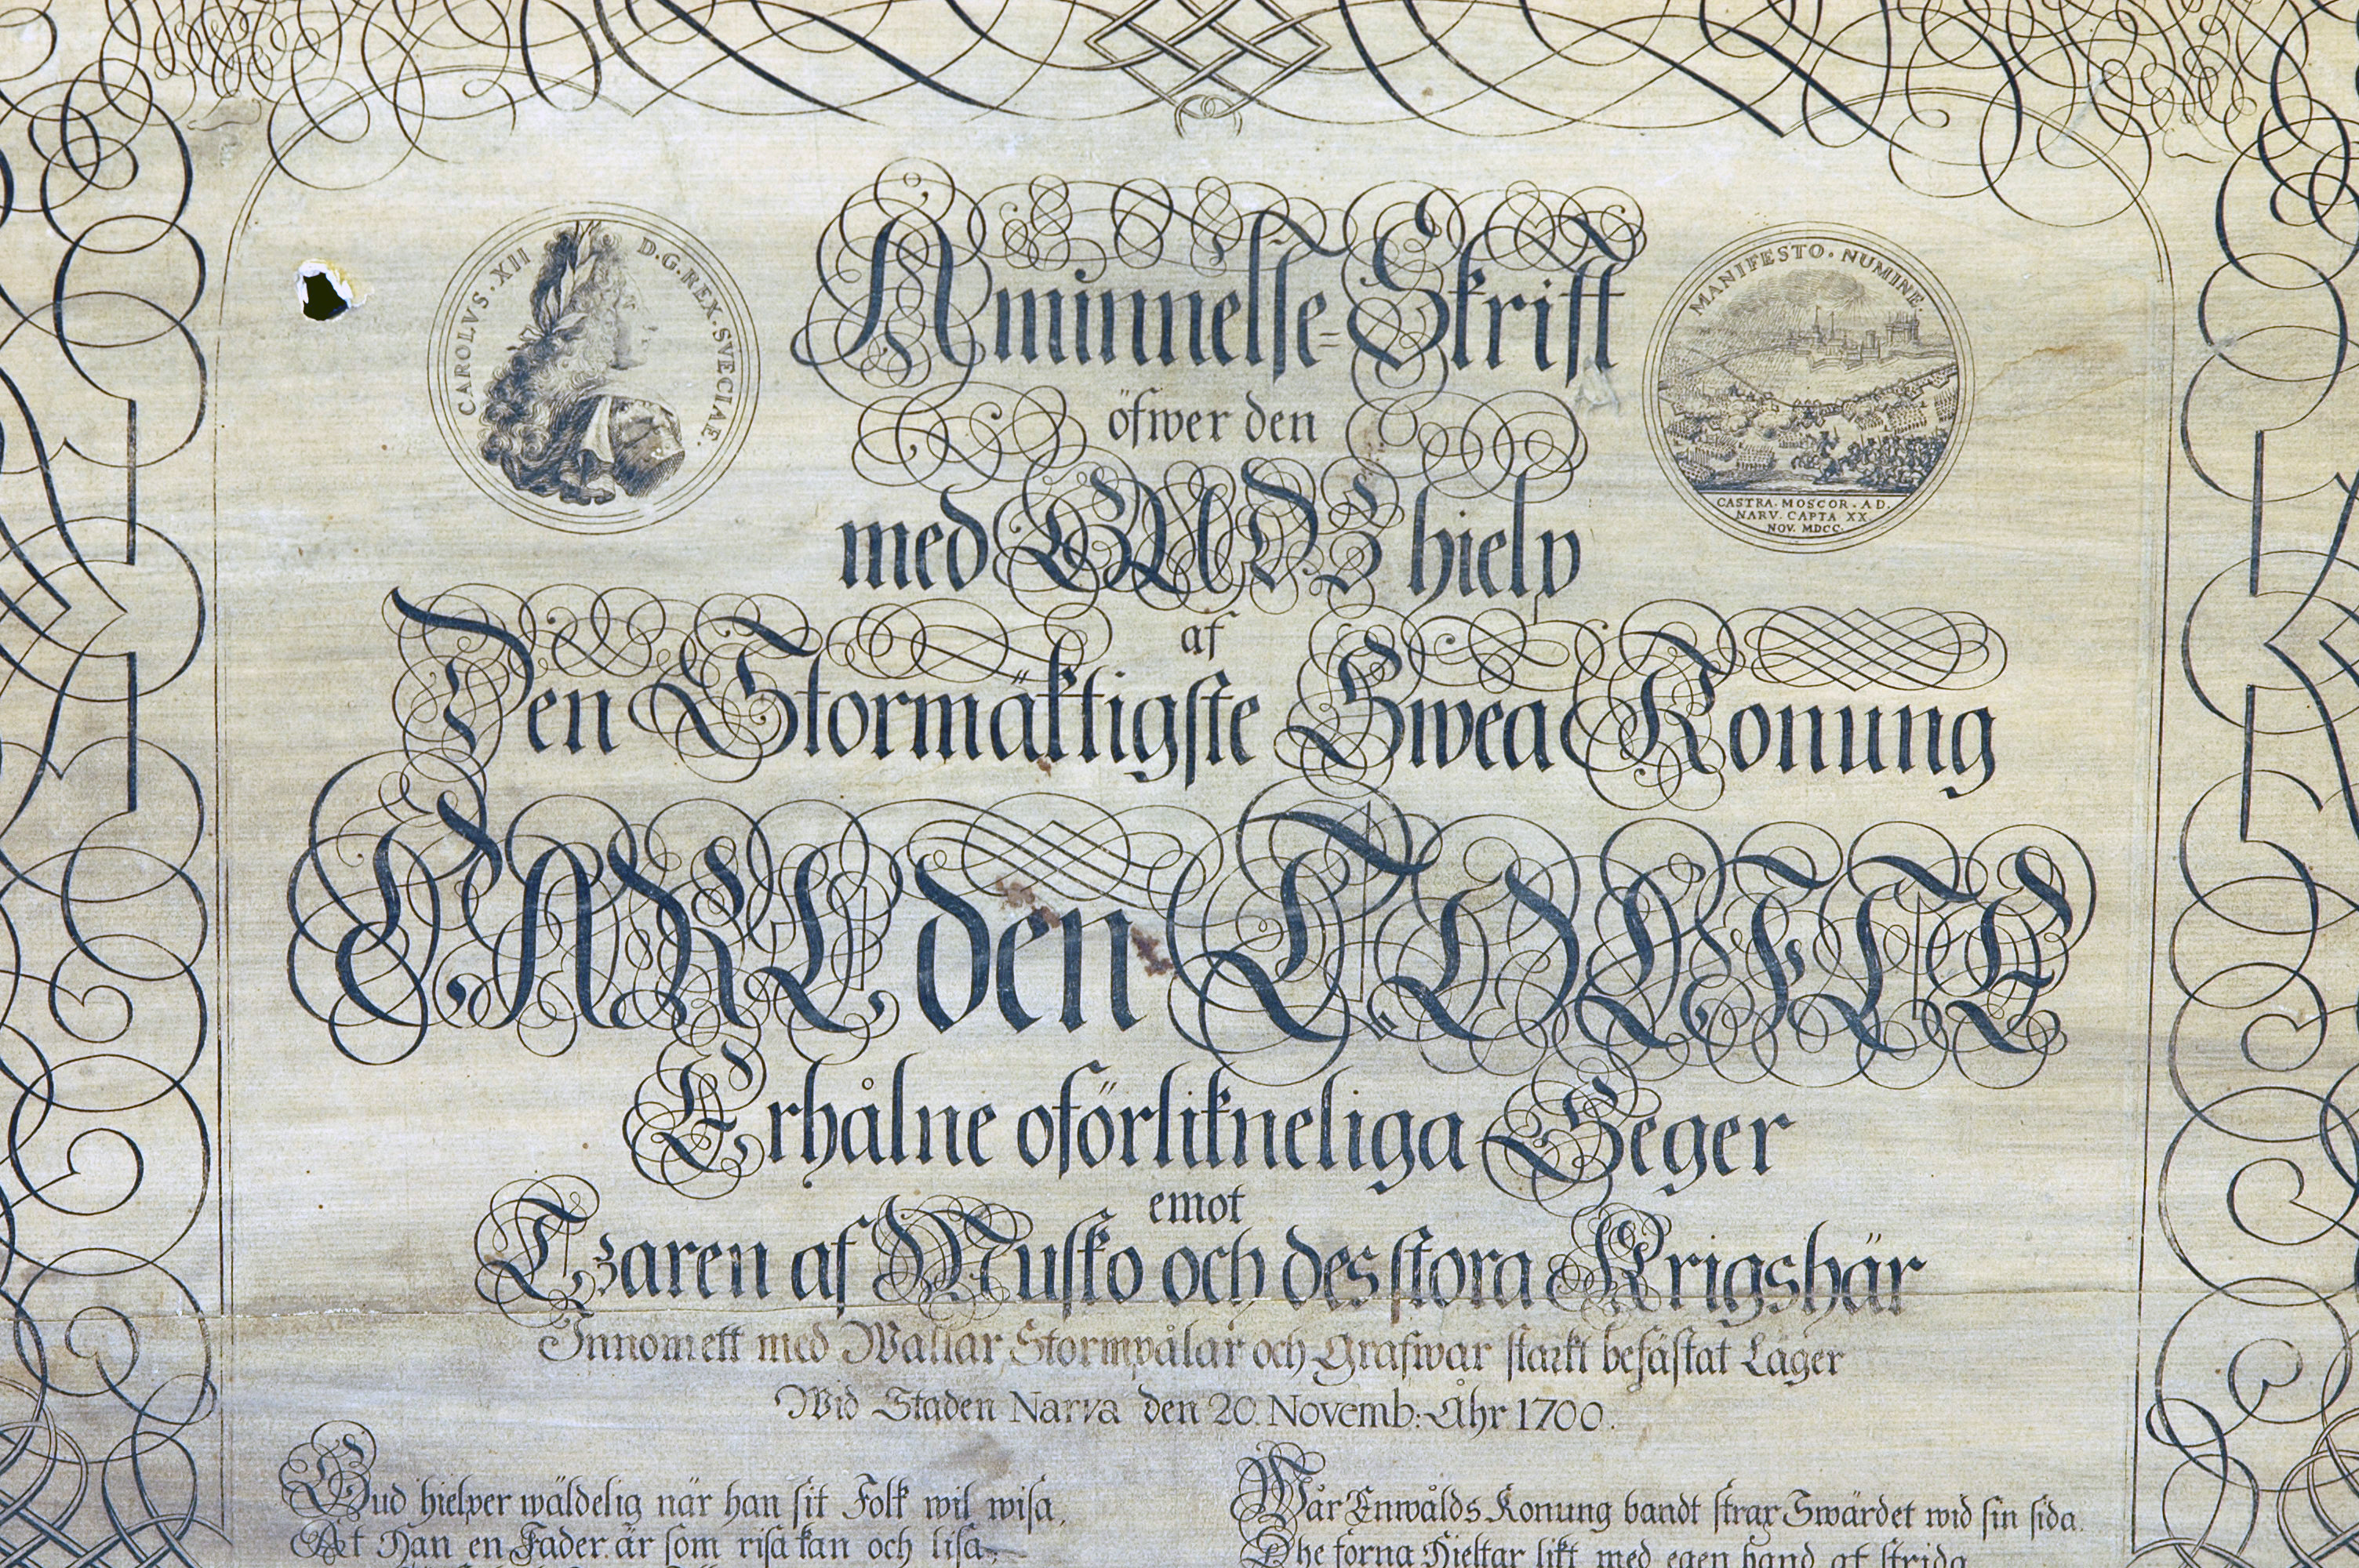 CAROLVS. XII D. G. REX. SVECIAE.
Åminnelse=Skrift
MANIFESTO. NUMINE.
CASTRA. MOSCOR. AD.
NARV. CAPTA XX.
NOV. MDCC.
öfwer den
med GUDS hielp
af
Den Stormäktigste Swea Konung
CARL den TOLFTE
Erhålne oförlikneliga Seger
emot
Tzaren af Musko och des stora Krigshär
Innom ett med Wallar Stormpålar och Grafwar starkt befästat Läger
Wid Staden Narva den 20. Novemb: Åhr 1700.
Gud hielper wäldelig när han sit Folk wil wisa,
At Han en Fader är som risa kan och lisa,
Wår Enwålds Konung bandt strax Swärdet wid sin sida.
The forna Hieltar likt med egen hand at strida